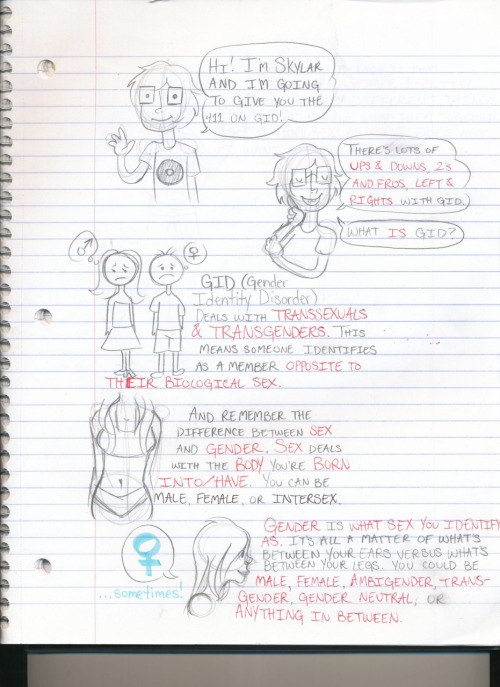 HI! I'M SKYLAR
AND I'M GOING
TO GIVE YOU THE
411 ON GID!
THERE'S LOTS OF
UPS & DOWNS, 2's
AND FROS, LEFT &
RIGHTS WITH GID.
WHAT IS GID?
♂
♀
GID (Gender
Identity Disorder)
DEALS WITH TRANSSEXUALS
& TRANSGENDERS. THIS
MEANS SOMEONE IDENTIFIES
AS A MEMBER OPPOSITE TO
THEIR BIOLOGICAL SEX.
AND REMEMBER THE
DIFFERENCE BETWEEN SEX
AND GENDER. SEX DEALS
WITH THE BODY YOU'RE BORN
INTO/HAVE. YOU CAN BE
MALE, FEMALE, OR INTERSEX.
GENDER IS WHAT SEX YOU IDENTIFY
AS. IT'S ALL A MATTER OF WHAT'S
BETWEEN YOUR EARS VERSUS WHAT'S
BETWEEN YOUR LEGS. YOU COULD BE
MALE, FEMALE, AMBIGENDER, TRANS-
GENDER, GENDER NEUTRAL, OR
ANYTHING IN BETWEEN.
♀
...sometimes!